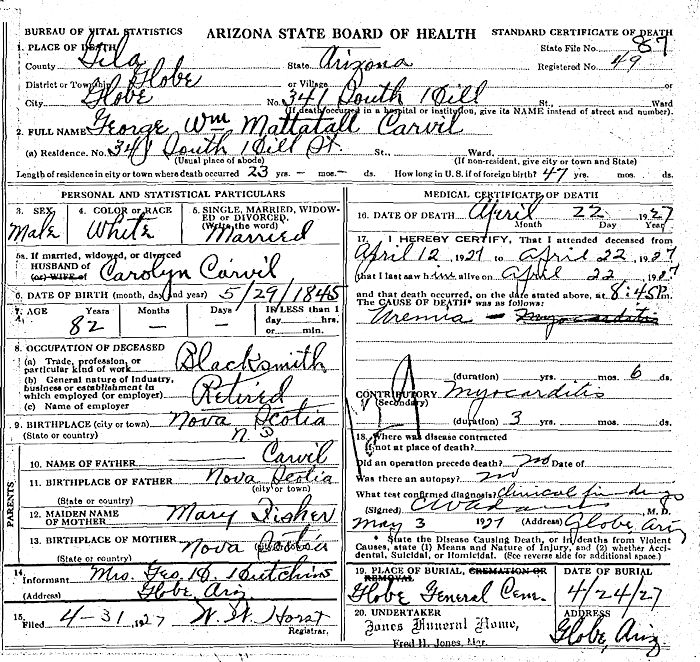 BUREAU OF VITAL STATISTICS ARIZONA STATE BOARD OF HEALTH STANDARD CERTIFICATE OF DEATH
1. PLACE OF DEATH State File No. 87
County Gila State Arizona Registered No. 49
District or Township Globe or Village or
City Globe No. 341 South Hill St., Ward
(If death occurred in a hospital or institution, give its NAME instead of street and number).
2. FULL NAME George Wm Mattatall Carvil
(a) Residence. No. 341 South Hill St. St., Ward.
(Usual place of abode) (If non-resident, give city or town and State)
Length of residence in city or town where death occurred 23 yrs. — mos. — ds. How long in U.S. if of foreign birth? 47 yrs. mos. ds.
PERSONAL AND STATISTICAL PARTICULARS
3. SEX 4. COLOR or RACE 5. SINGLE, MARRIED, WIDOWED or DIVORCED. (Write the word)
Male White Married
5a. If married, widowed, or divorced
HUSBAND of
(or) WIFE of Carolyn Carvil
6. DATE OF BIRTH (month, day and year) 5/29/1845
7. AGE Years Months Days IF LESS than 1 day hrs. or min.
82 — —
8. OCCUPATION OF DECEASED
(a) Trade, profession, or particular kind of work Blacksmith
(b) General nature of Industry, business or establishment in which employed (or employer) Retired
(c) Name of employer
9. BIRTHPLACE (city or town) Nova Scotia
(State or country) N. S
PARENTS
10. NAME OF FATHER Carvil
11. BIRTHPLACE OF FATHER Nova Scotia
(city or town)
(State or country)
12. MAIDEN NAME OF MOTHER Mary Fisher
13. BIRTHPLACE OF MOTHER Nova Scotia
(State or country)
14. Informant Mrs. Geo. H. Hutchins
(Address) Globe Ariz.
15. Filed 4-31, 1927 W. W. Horst
Registrar.
MEDICAL CERTIFICATE OF DEATH
16. DATE OF DEATH April 22 1927
Month Day Year
17. I HEREBY CERTIFY, That I attended deceased from
April 12, 1927 to April 22, 1927
that I last saw him alive on April 22, 1927
and that death occurred, on the date stated above, at 8:45P m.
The CAUSE OF DEATH* was as follows:
Uremia — Myocarditis
(duration) yrs. mos. 6 ds.
CONTRIBUTORY Myocarditis
(Secondary)
(duration) 3 yrs. mos. ds.
18. Where was disease contracted
if not at place of death?
Did an operation precede death? no Date of
Was there an autopsy? no
What test confirmed diagnosis? Clinical findings
(Signed) M. D.
May 3 1927 (Address) Globe Ariz
* State the Disease Causing Death, or in deaths from Violent
Causes, state (1) Means and Nature of Injury, and (2) whether Accidental, Suicidal, or Homicidal. (See reverse side for additional space.)
19. PLACE OF BURIAL, CREMATION OR REMOVAL DATE OF BURIAL
Globe General Cem. 4/24/27
20. UNDERTAKER ADDRESS
Jones Funeral Home, Globe, Ariz.
Fred H. Jones, Mgr.